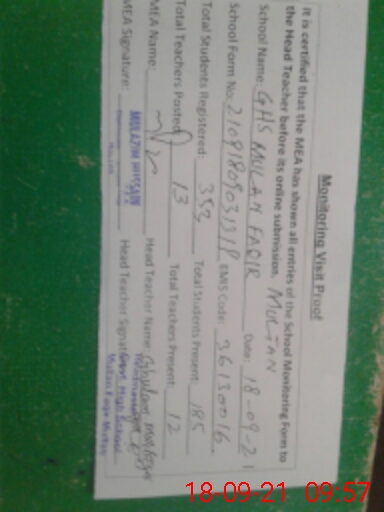 Monitoring Visit Proof
It is certified that the MEA has shown all entries of the School Monitoring Form to
the Head Teacher before its online submission. MULTAN
School Name: GHS MULAH FAQIR Date: 18-09-21
School Form No: EMIS Code: 36130016
Total Students Registered: 352 Total Students Present: 185
Total Teachers Posted: 13 Total Teachers Present: 12
MEA Name: Head Teacher Name: Ghulam
MEA Signature: Head Teacher Signature:
Govt. High School
Mullan Faqir Multan
18-09-21 09:57